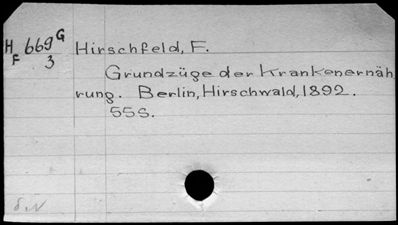 H 669 G
F 3
Hirschfeld, F.
Grundzüge der Krankenernäh
rung. Berlin, Hirschwald, 1892.
55S.